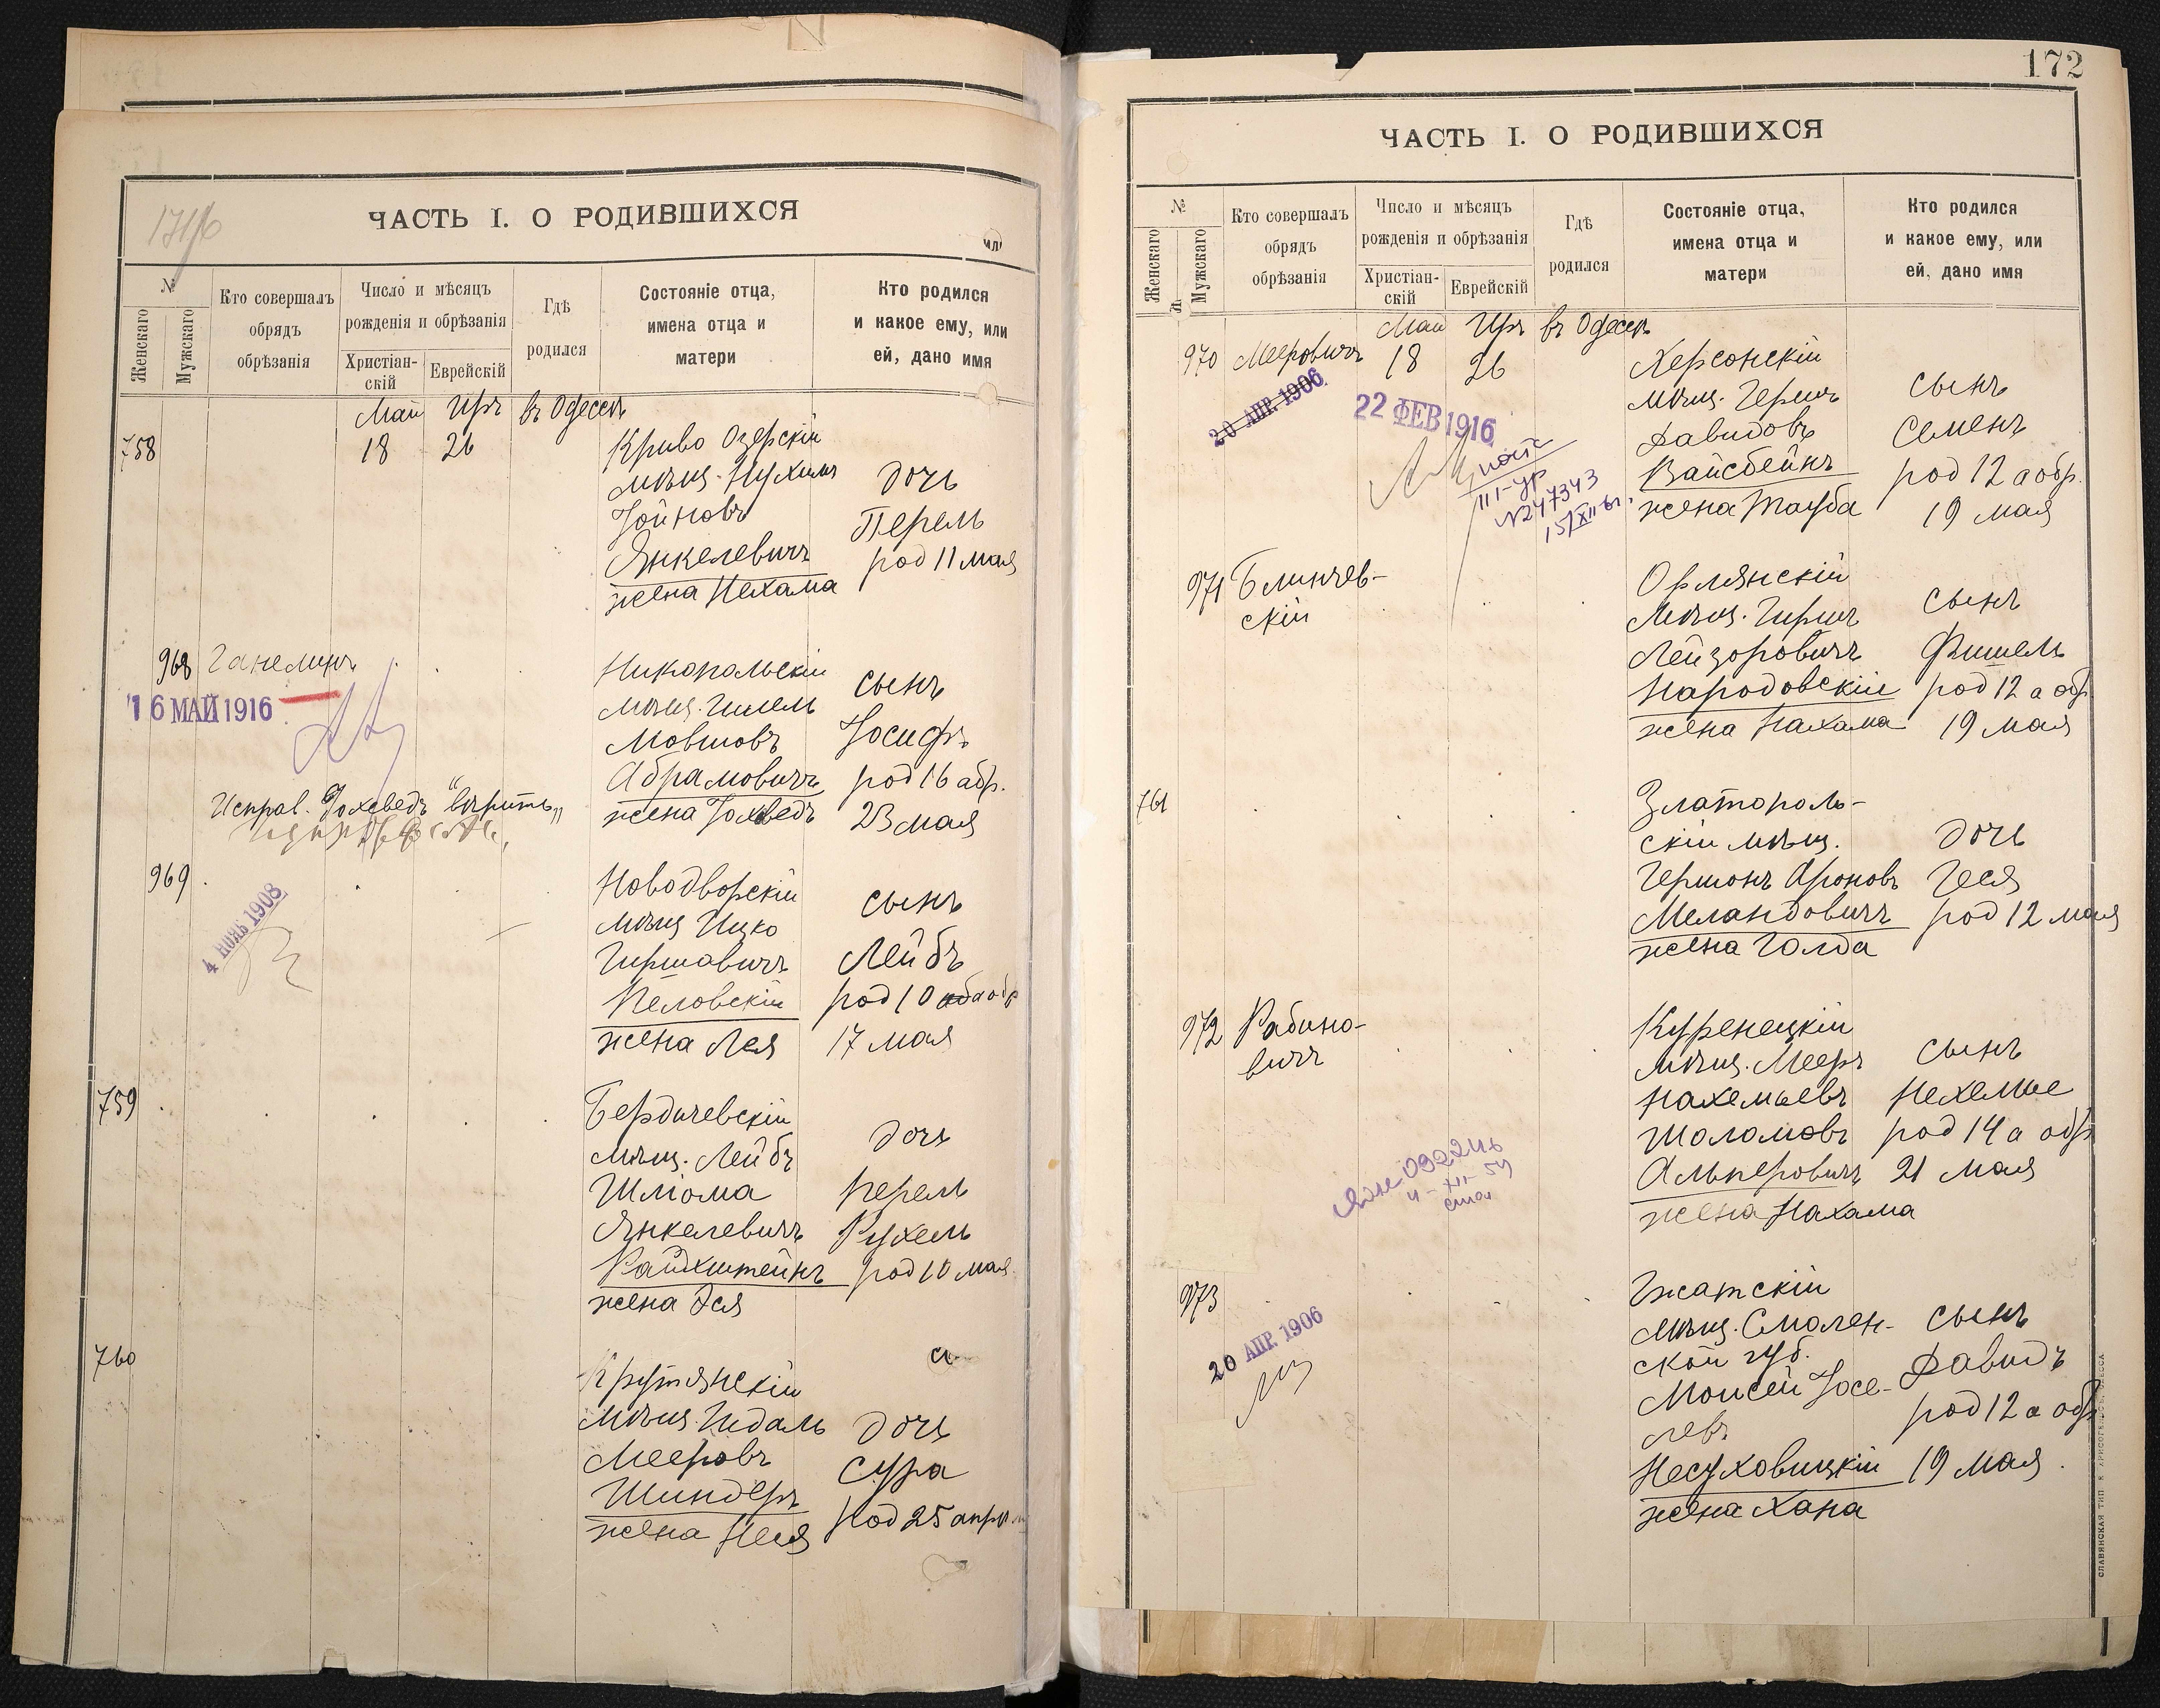 171/б
ЧАСТЬ I. О РОДИВШИХСЯ
№
Женскаго
Мужскаго
Кто совершалъ
обрядъ
обрѣзанія
Число и мѣсяцъ
рожденія и обрѣзанія
Христіан-
скій
Еврейскій
Гдѣ
родился
Состояніе отца,
имена отца и
матери
Кто родился
и какое ему, или
ей, дано имя
Май Иръ въ Одессѣ
758
18 26
Криво Озерскій
мѣщ. Нухимъ
Іойновъ
Янкелевичъ
жена Нехама
дочь
Перель
род 11 мая
968 Ганелинъ
16 МАЙ 1916
Исправ. Іохведъ "вѣрить"
Никопольскій
мѣщ. Шмель
Мовшовъ
Абрамовичъ
жена Іохведъ
сынъ
Іосифъ
род 16 абр.
23 мая
969
4 НОЯБ 1908
Новодворскій
мѣщ Ицко
Гиршовичъ
Пеловскій
жена Лея
сынъ
Лейбъ
род 10 а обр
17 мая
759
Бердичевскій
мѣщ. Лейбъ
Шліома
Янкелевичъ
Райдхштейнъ
жена Эся
дочь
Перель
Рухель
род 10 мая
760
Крутянскій
мѣщ. Гидаль
Мееровъ
Шиндеръ
жена Неся
дочь
Сура
род 25 апрѣл
172
ЧАСТЬ I. О РОДИВШИХСЯ
№
Женскаго
Мужскаго
Кто совершалъ
обрядъ
обрѣзанія
Число и мѣсяцъ
рожденія и обрѣзанія
Христіан-
скій
Еврейскій
Гдѣ
родился
Состояніе отца,
имена отца и
матери
Кто родился
и какое ему, или
ей, дано имя
Май Иръ въ Одессѣ
970 Мееровичъ 18 26
20 АПР. 1906
22 ФЕВ 1916
III-УР
№247343
Херсонскій
мѣщ. Гершъ
Давидовъ
Вайсбейнъ
жена Тауба
сынъ
Семенъ
род 12 а обр.
19 мая
971 Блинчев-
скій
Орлянскій
мѣщ. Гиршъ
Лейзоровичъ
Народовскій
жена Нахама
сынъ
Фишель
род 12 а обр
19 мая
761
Златополь-
скій мѣщ.
Гершонъ Ароновъ
Меландовичъ
жена Голда
дочь
Геся
род 12 мая
972 Рабино-
вичъ
Куренецкій
мѣщ. Мееръ
Нахемьевъ
Шоломовъ
Альперовичъ
жена Нахама
сынъ
Нехемие
род 14 а обр
21 мая
973
20 АПР. 1906
Гжатскій
мѣщ. Смолен-
ской губ.
Моисей Іосе-
левъ
Несуховицкій
жена Хана
сынъ
Давидъ
род 12 а обр
19 мая.